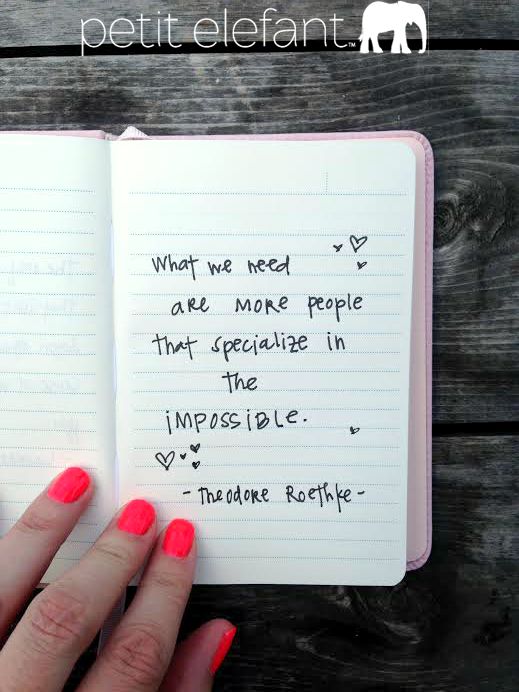 petit elefant™
What we need
are more people
that specialize in
the
impossible.
- Theodore Roethke -